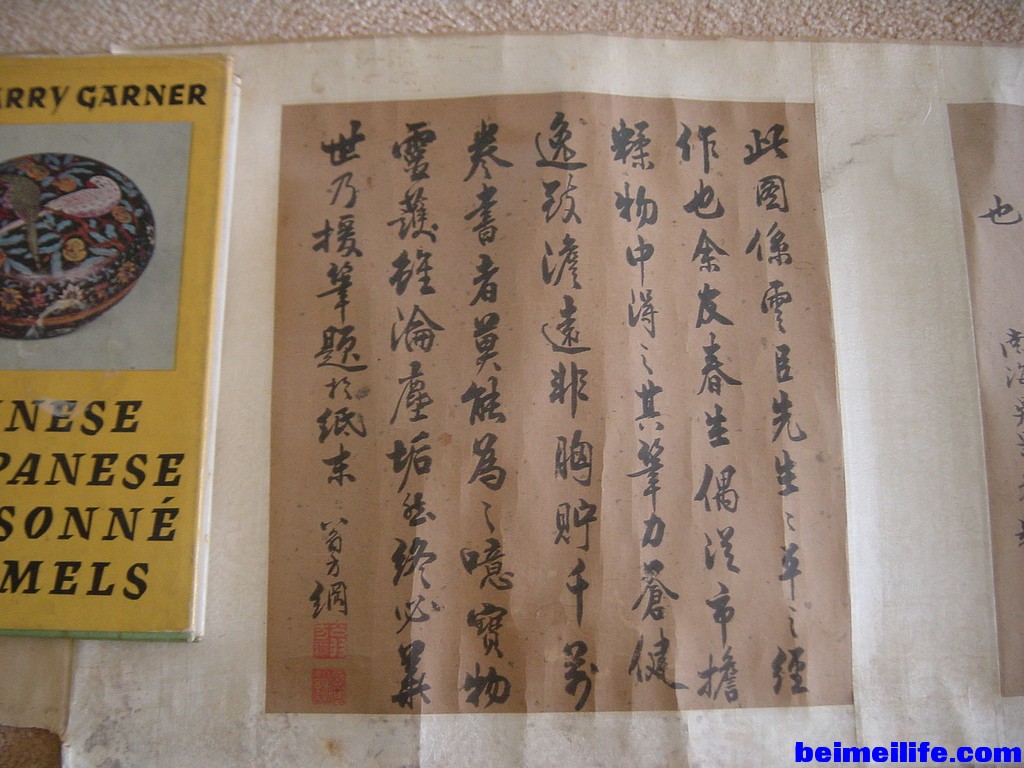 ARRY GARNER
INESE
PANESE
SONNÉ
MELS
此圖係雲臣先生之草之經
作也余友春生偶從市擔
糅物中得之其筆力蒼健
逸致澹遠非胸貯千萬
卷書者莫能為之噫寶物
靈護雖淪塵垢然終必華
世乃援筆題於紙末
翁方綱
也
南海
beimeilife.com